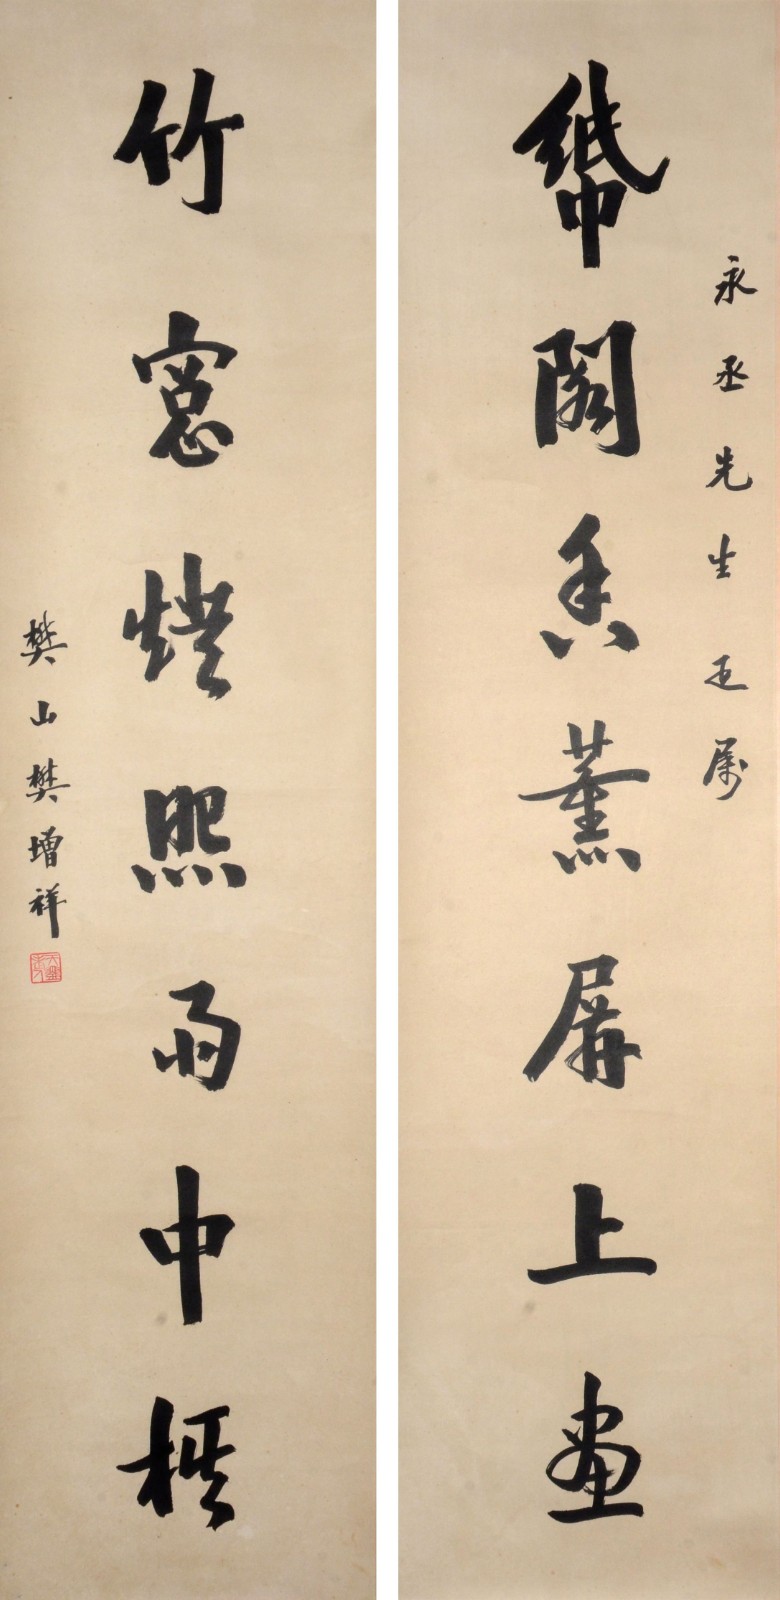 永丞先生正屬
紙閣香薰屏上畫
竹窻燈照雨中棋
樊山樊增祥